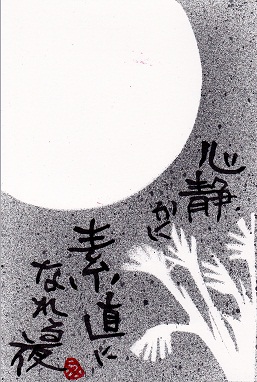 心静
かに
素直に
なれる
夜